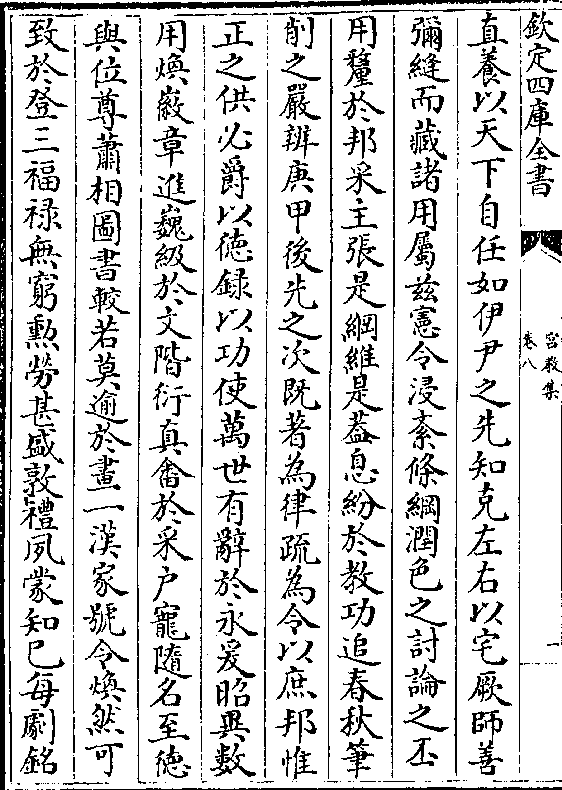 欽定四庫全書
宮教集
卷八
直養以天下自任如伊尹之先知克左右以宅厥師善
彌縫而藏諸用屬兹憲令浸紊條綱潤色之討論之丕
用釐於邦采主張是綱維是蓋息紛於教功追春秋筆
削之嚴辨庚甲後先之次既著為律疏為令以庶邦惟
正之供必爵以徳録以功使萬世有辭於永爰昭異數
用煥徽章進巍級於文階衍真畬於采户寵隨名至徳
與位尊蕭相圖書較若莫逾於畫一漢家號令煥然可
致於登三福禄無窮勲勞甚盛敦禮夙蒙知已每劇銘